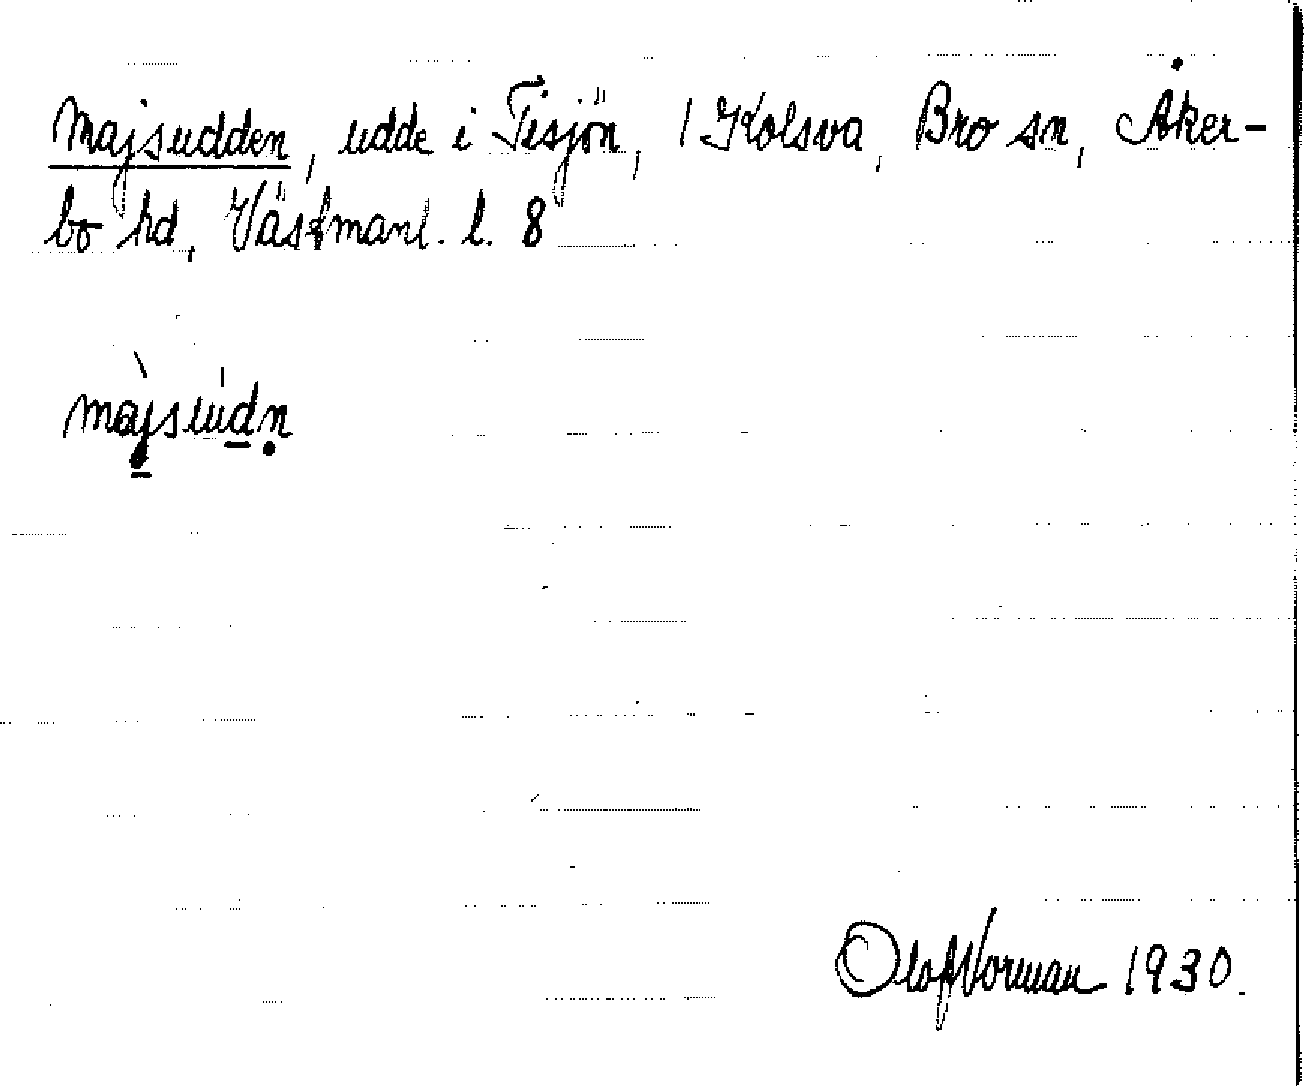 Majsudden, udde i Tisjön, 1 Kolsva, Bro sn, Åker-
bo hd, Västmanl. l. 8
màjsuddn
Olof Norman 1930.